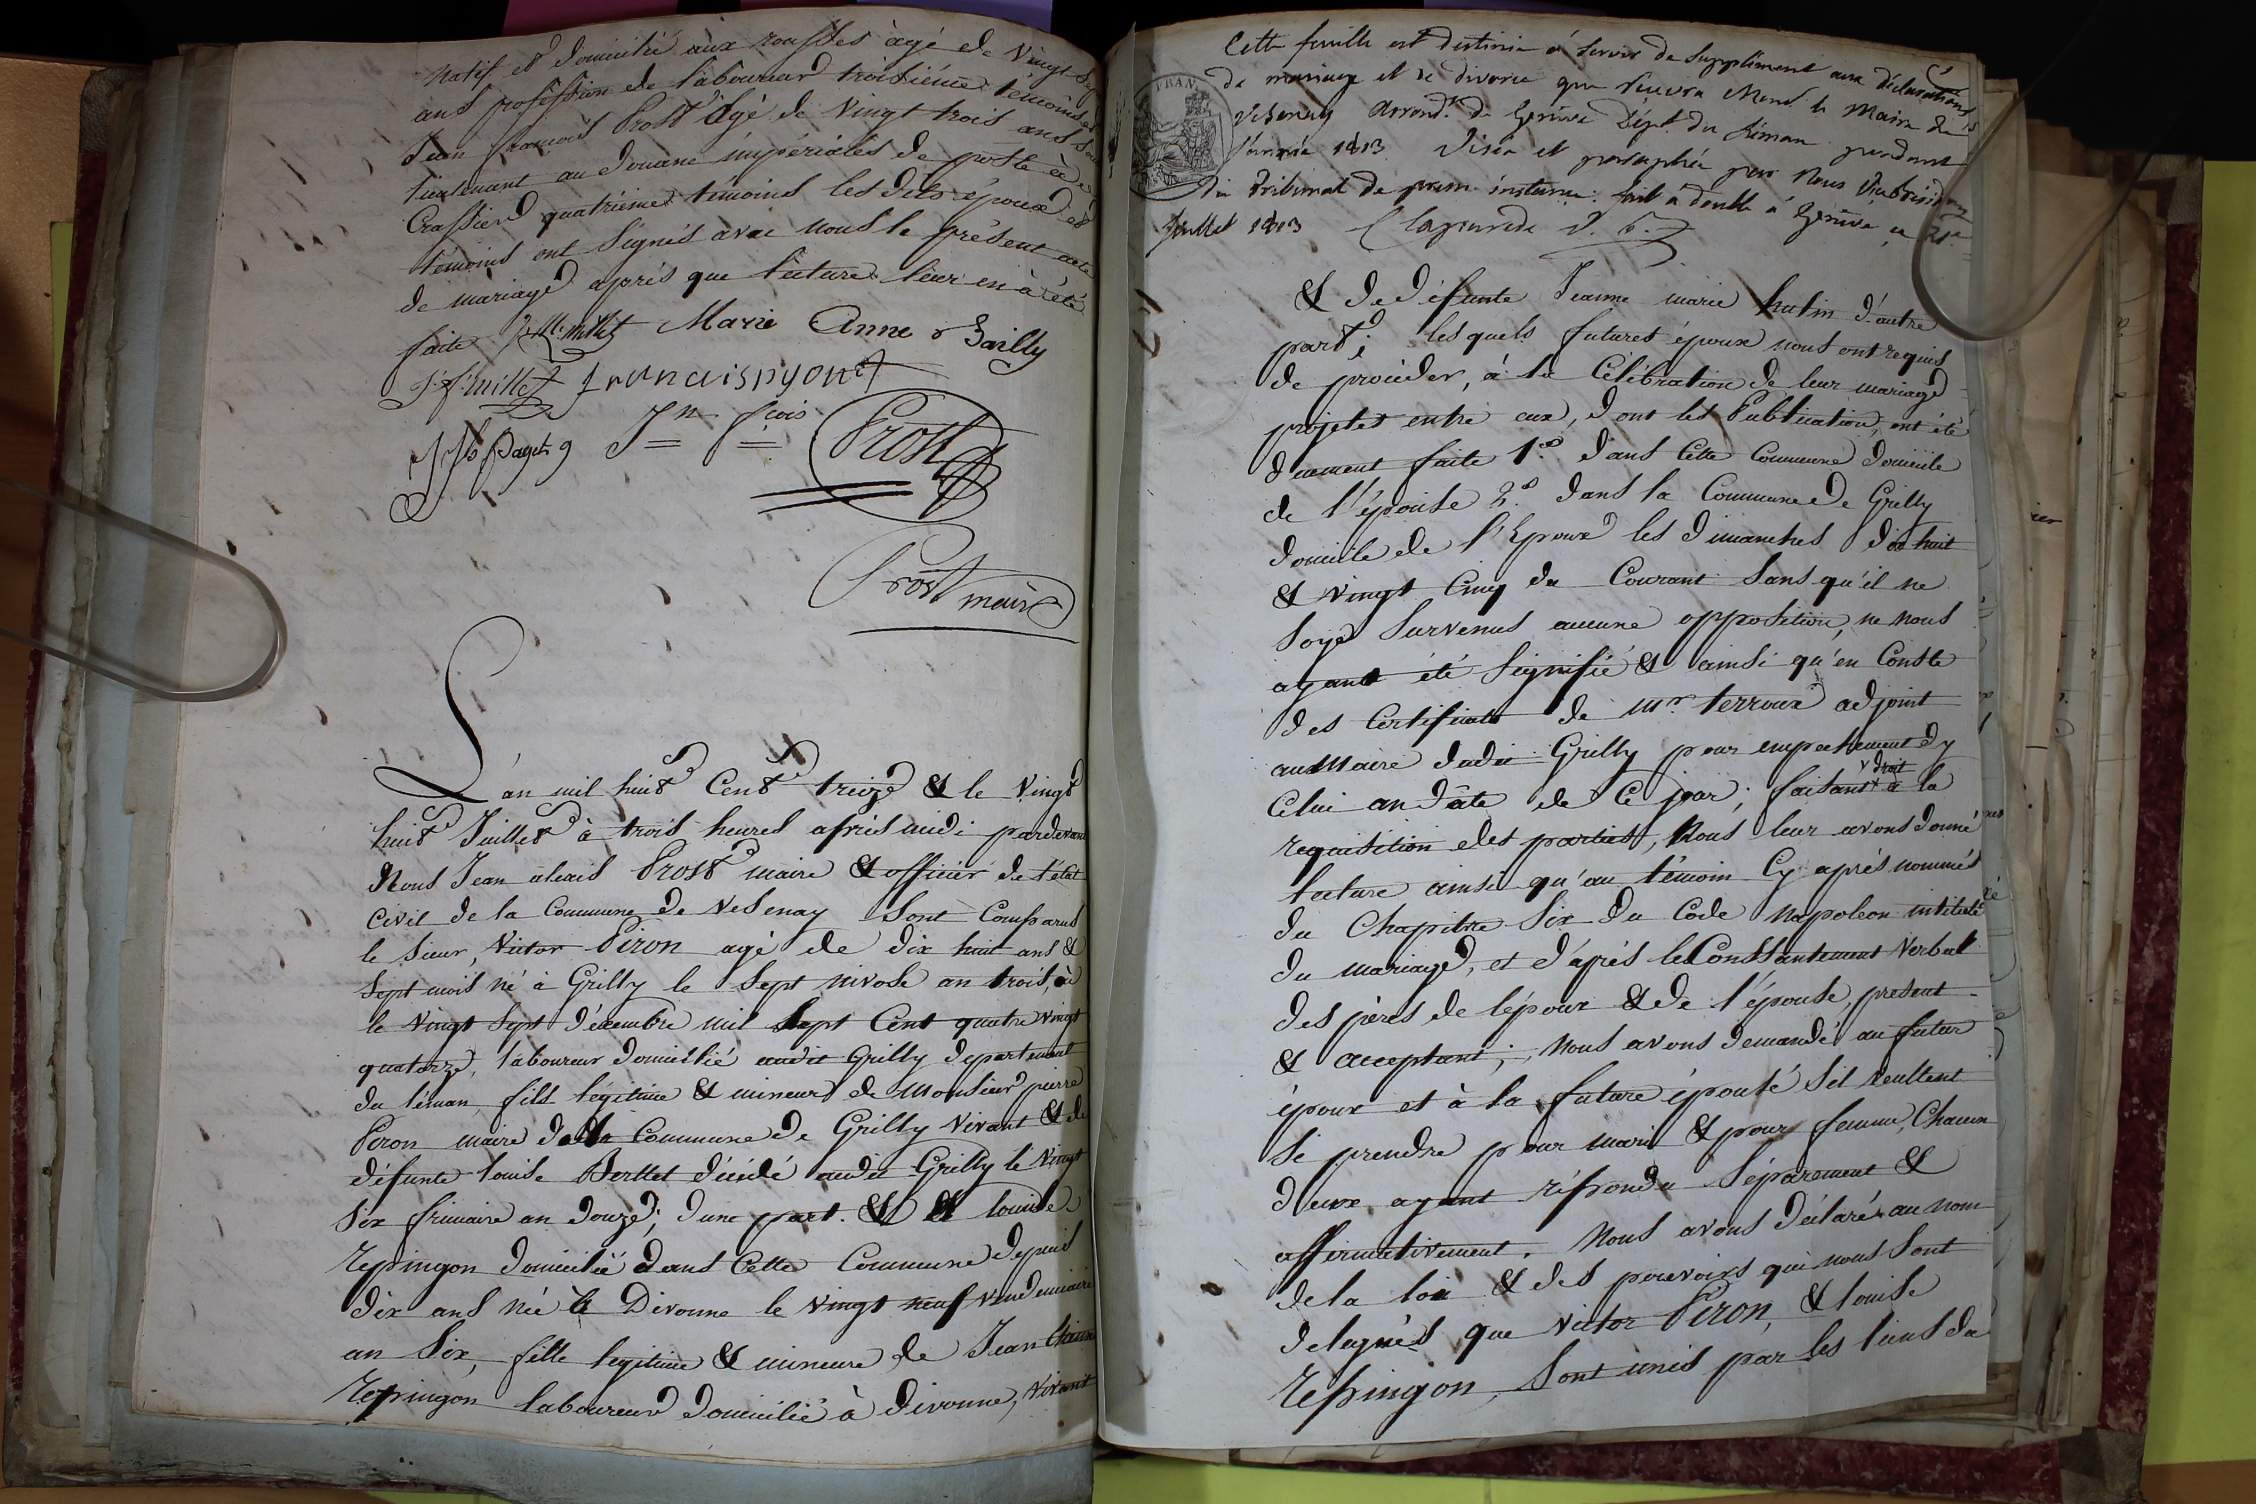 natif et domicilié aux rousses agé de vingt sept
ans profession de laboureur troisième témoins et
Jean françois Prost agé de vingt trois ans sous
lieutenant au douane impériales de poste à
Crassier quatrième témoins les dits époux et
témoins ont signés avec nous le présent acte
de mariage après que lecture leur en à été
faite Marie Anne Bailly
J. f. millet francois pyont
Jph paget Jn fcois Prost
Prost maire
L'an mil huit Cent treize & le vingt
huit Juillet à trois heures après midi pardevant
Nous Jean alexis Prost maire & officier de l'état
Civil de la Commune de Vesenay Sont Comparus
le sieur, Victor Piron agé de dix huit ans &
sept mois né à Grilly le sept nivose an trois, où
le vingt sept décembre mil sept Cent quatre vingt
quatorze, laboureur domicilié audit Grilly departement
du léman, fils légitime & mineur de Monsieur pierre
Piron maire de la Commune de Grilly vivant & de
défunte louise Berlet décédé audit Grilly le vingt
six frimaire an douze; d'une part. & louise
repingon domicilié dans Cette Commune depuis
dix ans née à Divonne le vingt neuf vendemiaire
an six, fille legitime & mineure de Jean
repingon laboureur domicilié à divonne, vivant
Cette feuille est destinée à servir de supplément aux déclarations
de mariage et de divorce que recevra Monsr le Maire de
Vesenay Arrondt de Genève Dépt du Léman pendant
l'année 1813 Visée et paraphée par Nous
du Tribunal de prem. instance: fait à double à Genève ce 21e
Juillet 1813
& de défunte Jeanne marie hutin d'autre
part; lesquels futures époux nous ont requis
de proceder, à la Célébration de leur mariage
projetes entre eux, dont les Publication, ont été
duement faite 1.° dans Cette Commune domicile
de l'épouse 2.° dans la Commune de Grilly
domicile de l'Epoux les dimanches dix huit
& vingt Cinq du Courant sans qu'il ne
soye survenus aucune opposition, ne nous
ayant été signifié & ainsi qu'en Conste
des Certificats de Mr. terroux adjoint
au Maire dudit Grilly pour empechement dy
Celui an dâte de Ce jour; faisant droit à la
requisition des parties, Nous leur avons donné
lecture ainsi qu'au témoin Cy après nommés
du Chapitre six du Code Napoleon intitulé
du mariage, et d'après le Conssantement verbal
des pères de l'époux & de l'épouse, present
& acceptant; Nous avons demandé au futur
époux et à la future épouse s'il veullent
se prendre pour mari & pour femme, Chacun
d'eux ayant répondu séparement &
affirmativement. Nous avons déclaré au nom
de la loi & des pouvoirs qui nous sont
delegués que Victor Piron, & louise
repingon, sont unis par les liens du